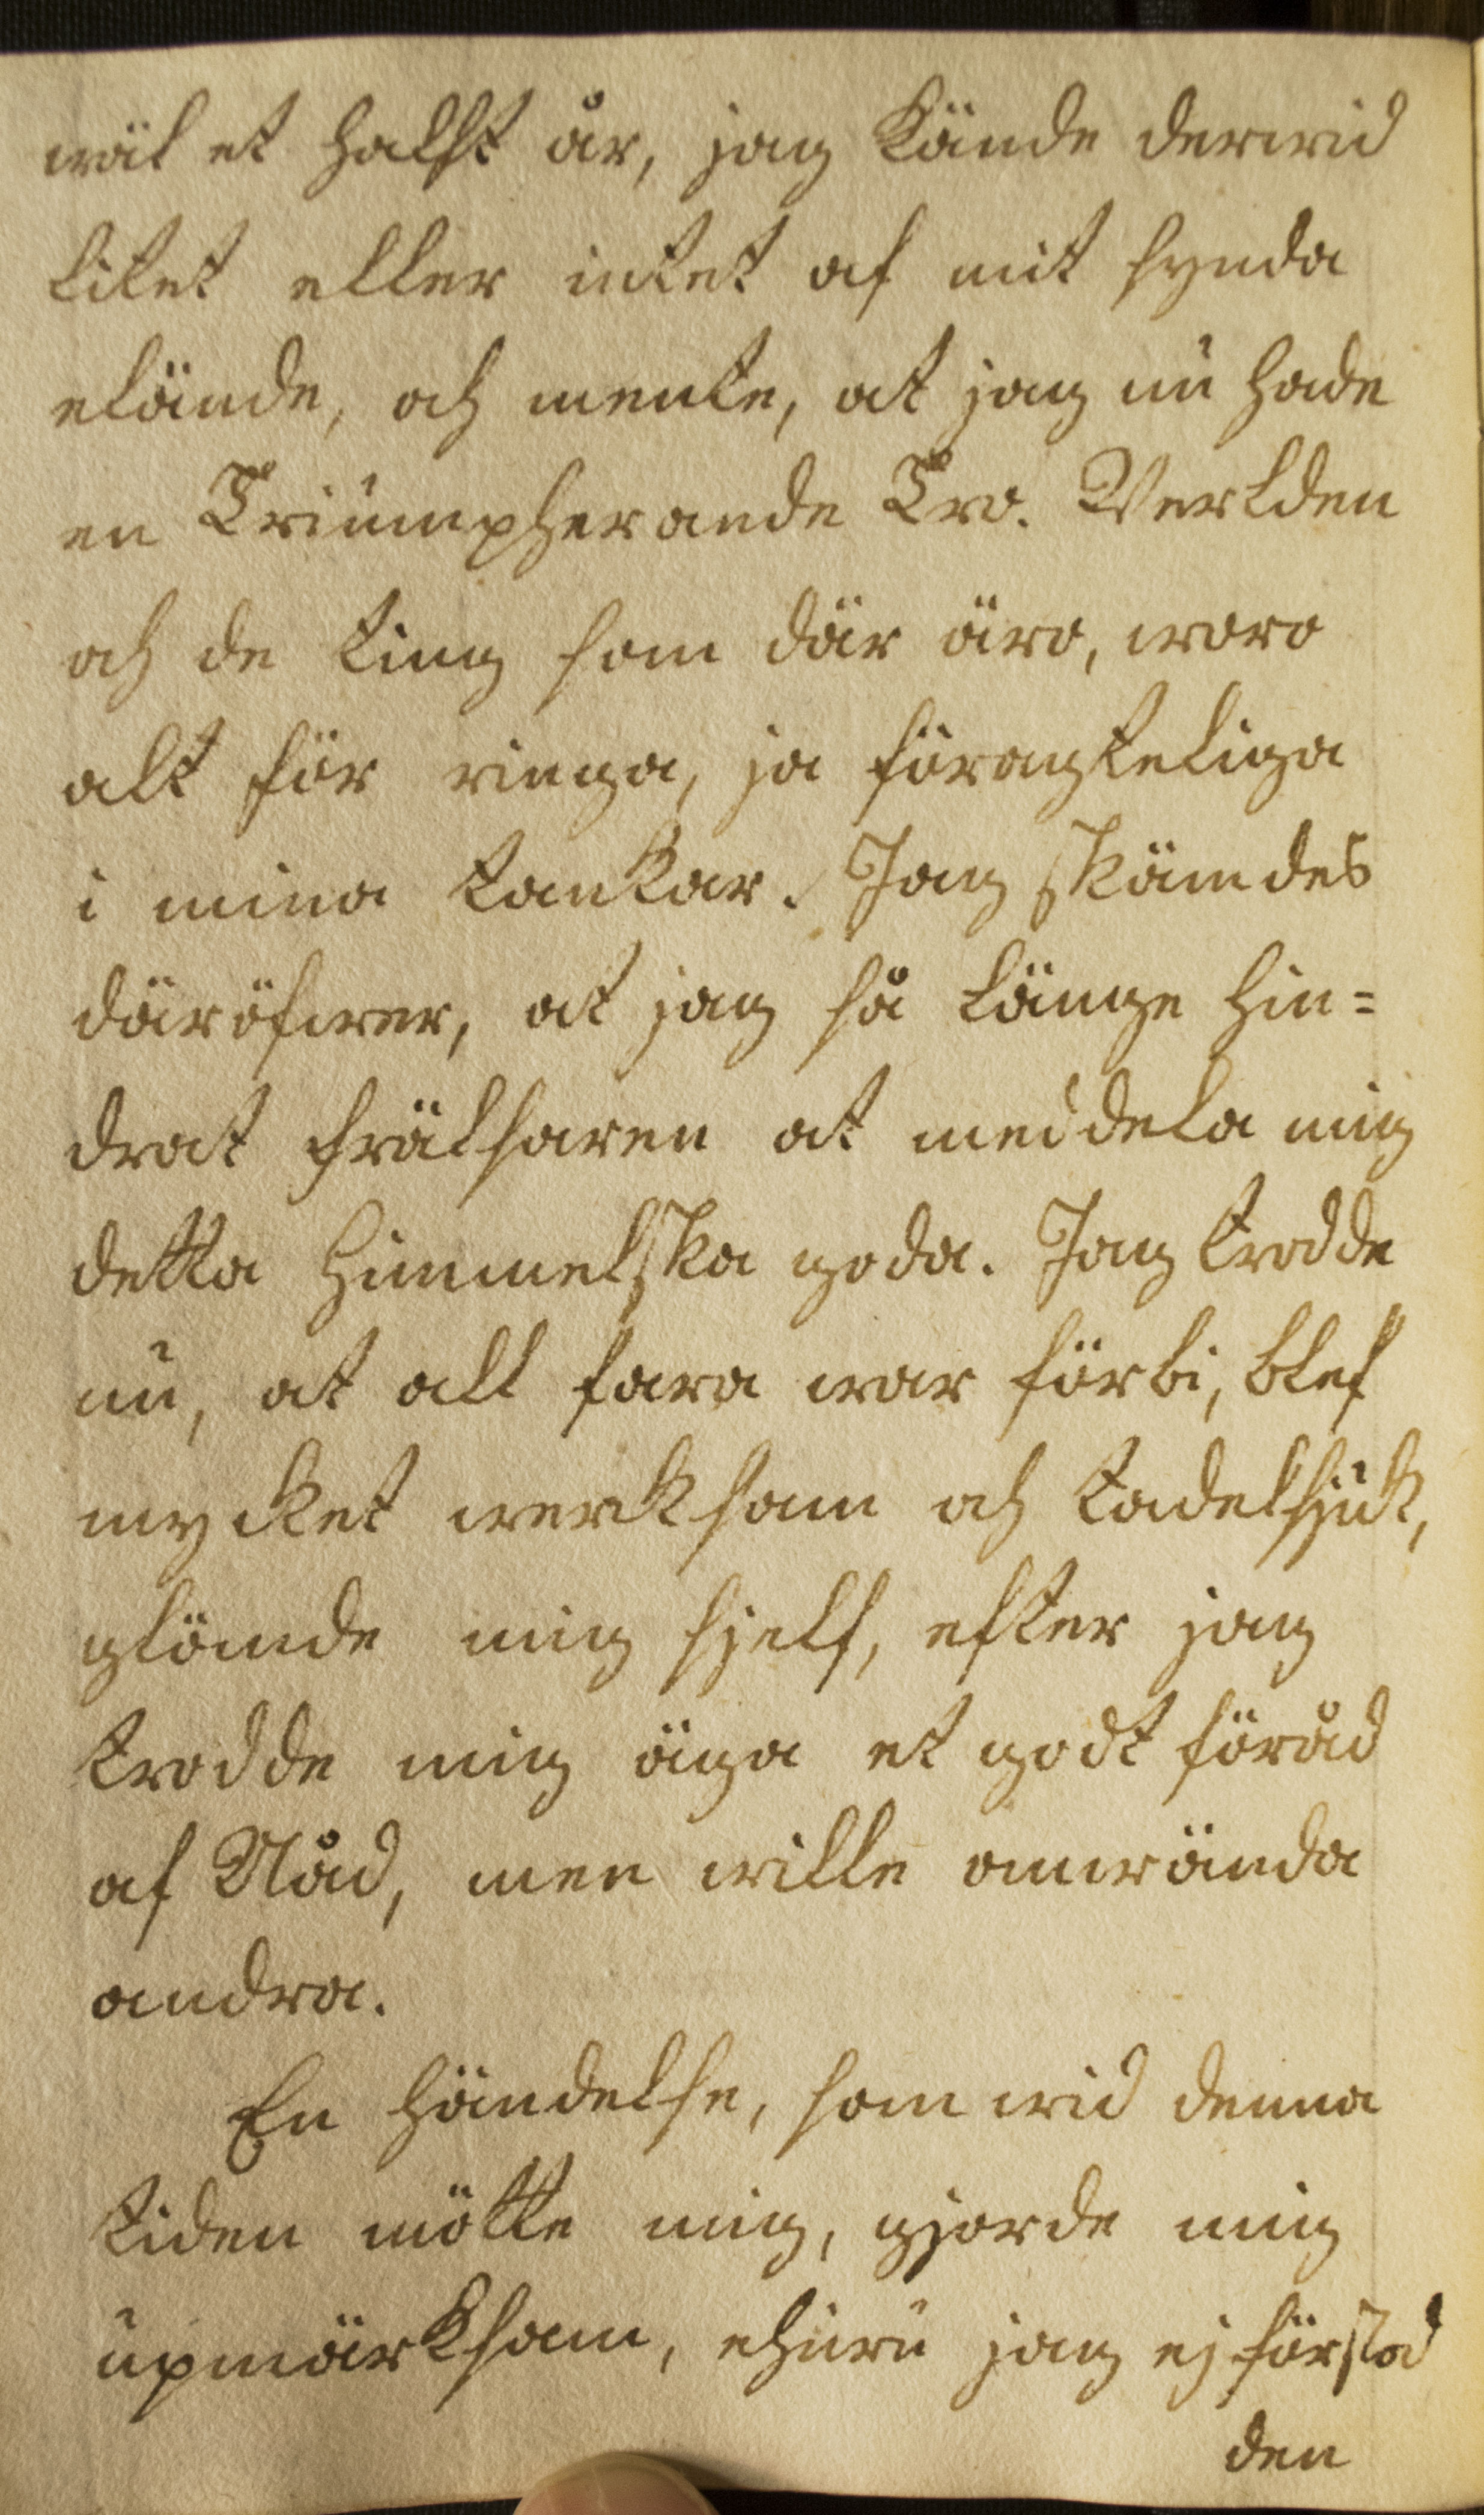 wäl et halft år, jag kände derwid
litet eller intet af mit synda
elände, och mente, at jag nu hade
en Triumpherande Tro. Werlden
och de ting som där äro, woro
alt för ringa, ja föragteliga
i mina tankar. Jag skämdes
däröfwer, at jag så länge hin=
drat frälsaren at meddela mig
detta Himmelska goda. Jag trodde
nu, at all fara war förbi, blef
mycket werksam och tadelsjuk,
glömde mig sjelf, efter jag
trodde mig äga et godt föråd
af Nåd, men wille omwända
andra.
En händelse, som wid denna
tiden mötte mig, gjorde mig
upmärksam, ehuru jag ej förstod
den